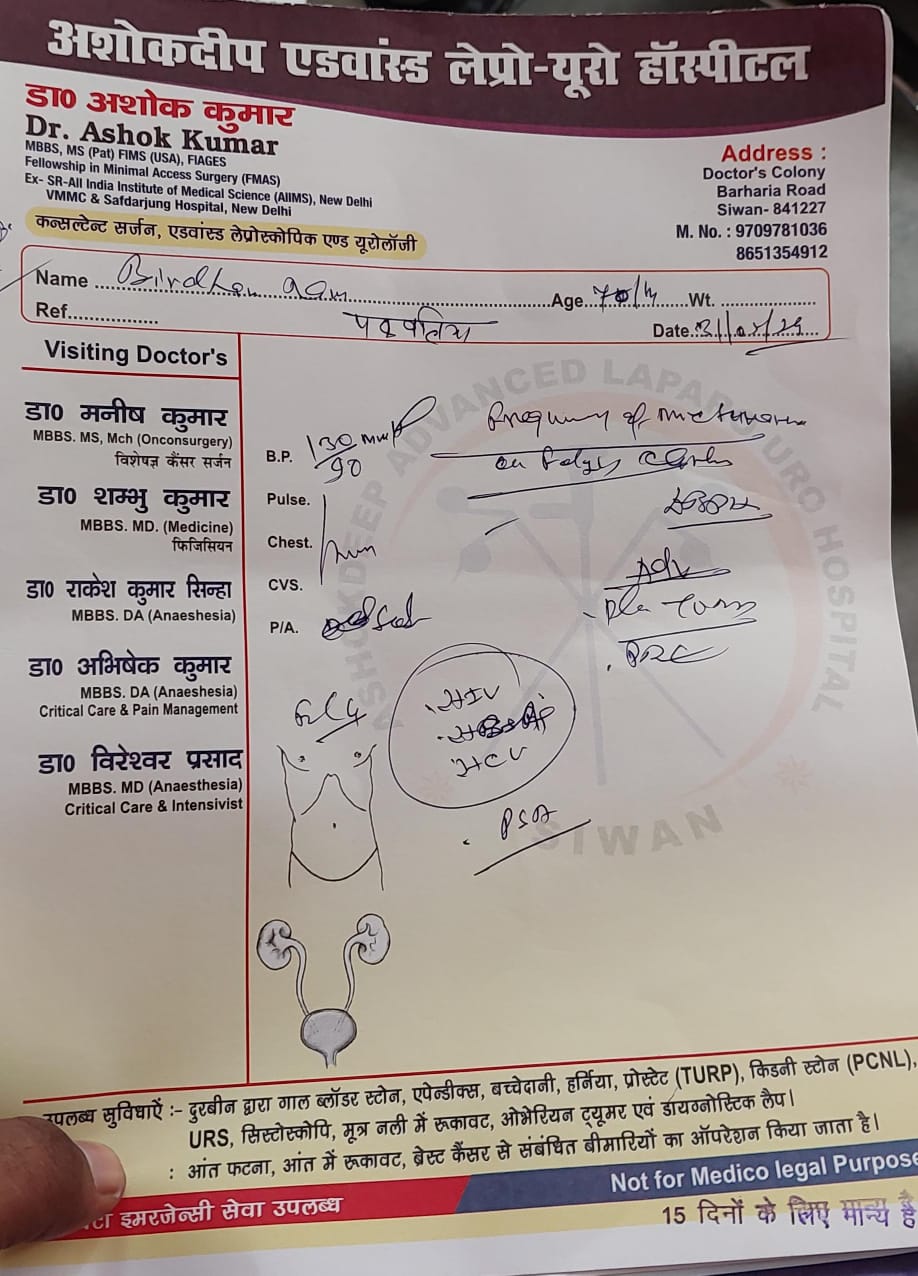 अशोकदीप एडवांस्ड लेप्रो-यूरो हॉस्पीटल
डा0 अशोक कुमार
Dr. Ashok Kumar
MBBS, MS (Pat) FIMS (USA), FIAGES
Fellowship in Minimal Access Surgery (FMAS)
Ex- SR-All India Institute of Medical Science (AIIMS), New Delhi
VMMC & Safdarjung Hospital, New Delhi
कन्सल्टेन्ट सर्जन, एडवांस्ड लेप्रोस्कोपिक एण्ड यूरोलॉजी
Address :
Doctor's Colony
Barharia Road
Siwan- 841227
M. No. : 9709781036
8651354912
Name Age 70/M Wt.
Ref. Date
Visiting Doctor's
डा0 मनीष कुमार
MBBS. MS, Mch (Onconsurgery)
विशेषज्ञ कैंसर सर्जन
डा0 शम्भु कुमार
MBBS. MD. (Medicine)
फिजिसियन
डा0 राकेश कुमार सिन्हा
MBBS. DA (Anaeshesia)
डा0 अभिषेक कुमार
MBBS. DA (Anaeshesia)
Critical Care & Pain Management
डा0 विरेश्वर प्रसाद
MBBS. MD (Anaesthesia)
Critical Care & Intensivist
B.P. 130/90
Pulse.
Chest.
CVS.
P/A.
Frequency of micturition
on
Adv
HIV
HCV
PSA
ASHOKDEEP ADVANCED LAPARO URO HOSPITAL
SIWAN
उपलब्ध सुविधाऐं :- दुरबीन द्वारा गाल ब्लॉडर स्टोन, एपेन्डीक्स, बच्चेदानी, हर्निया, प्रोस्टेट (TURP), किडनी स्टोन (PCNL),
URS, सिस्टोस्कोपि, मूत्र नली में रूकावट, ओभेरियन ट्यूमर एवं डायग्नोस्टिक लैप।
: आंत फटना, आंत में रूकावट, ब्रेस्ट कैंसर से संबंधित बीमारियों का ऑपरेशन किया जाता है।
Not for Medico legal Purpose
इमरजेन्सी सेवा उपलब्ध
15 दिनों के लिए मान्य है